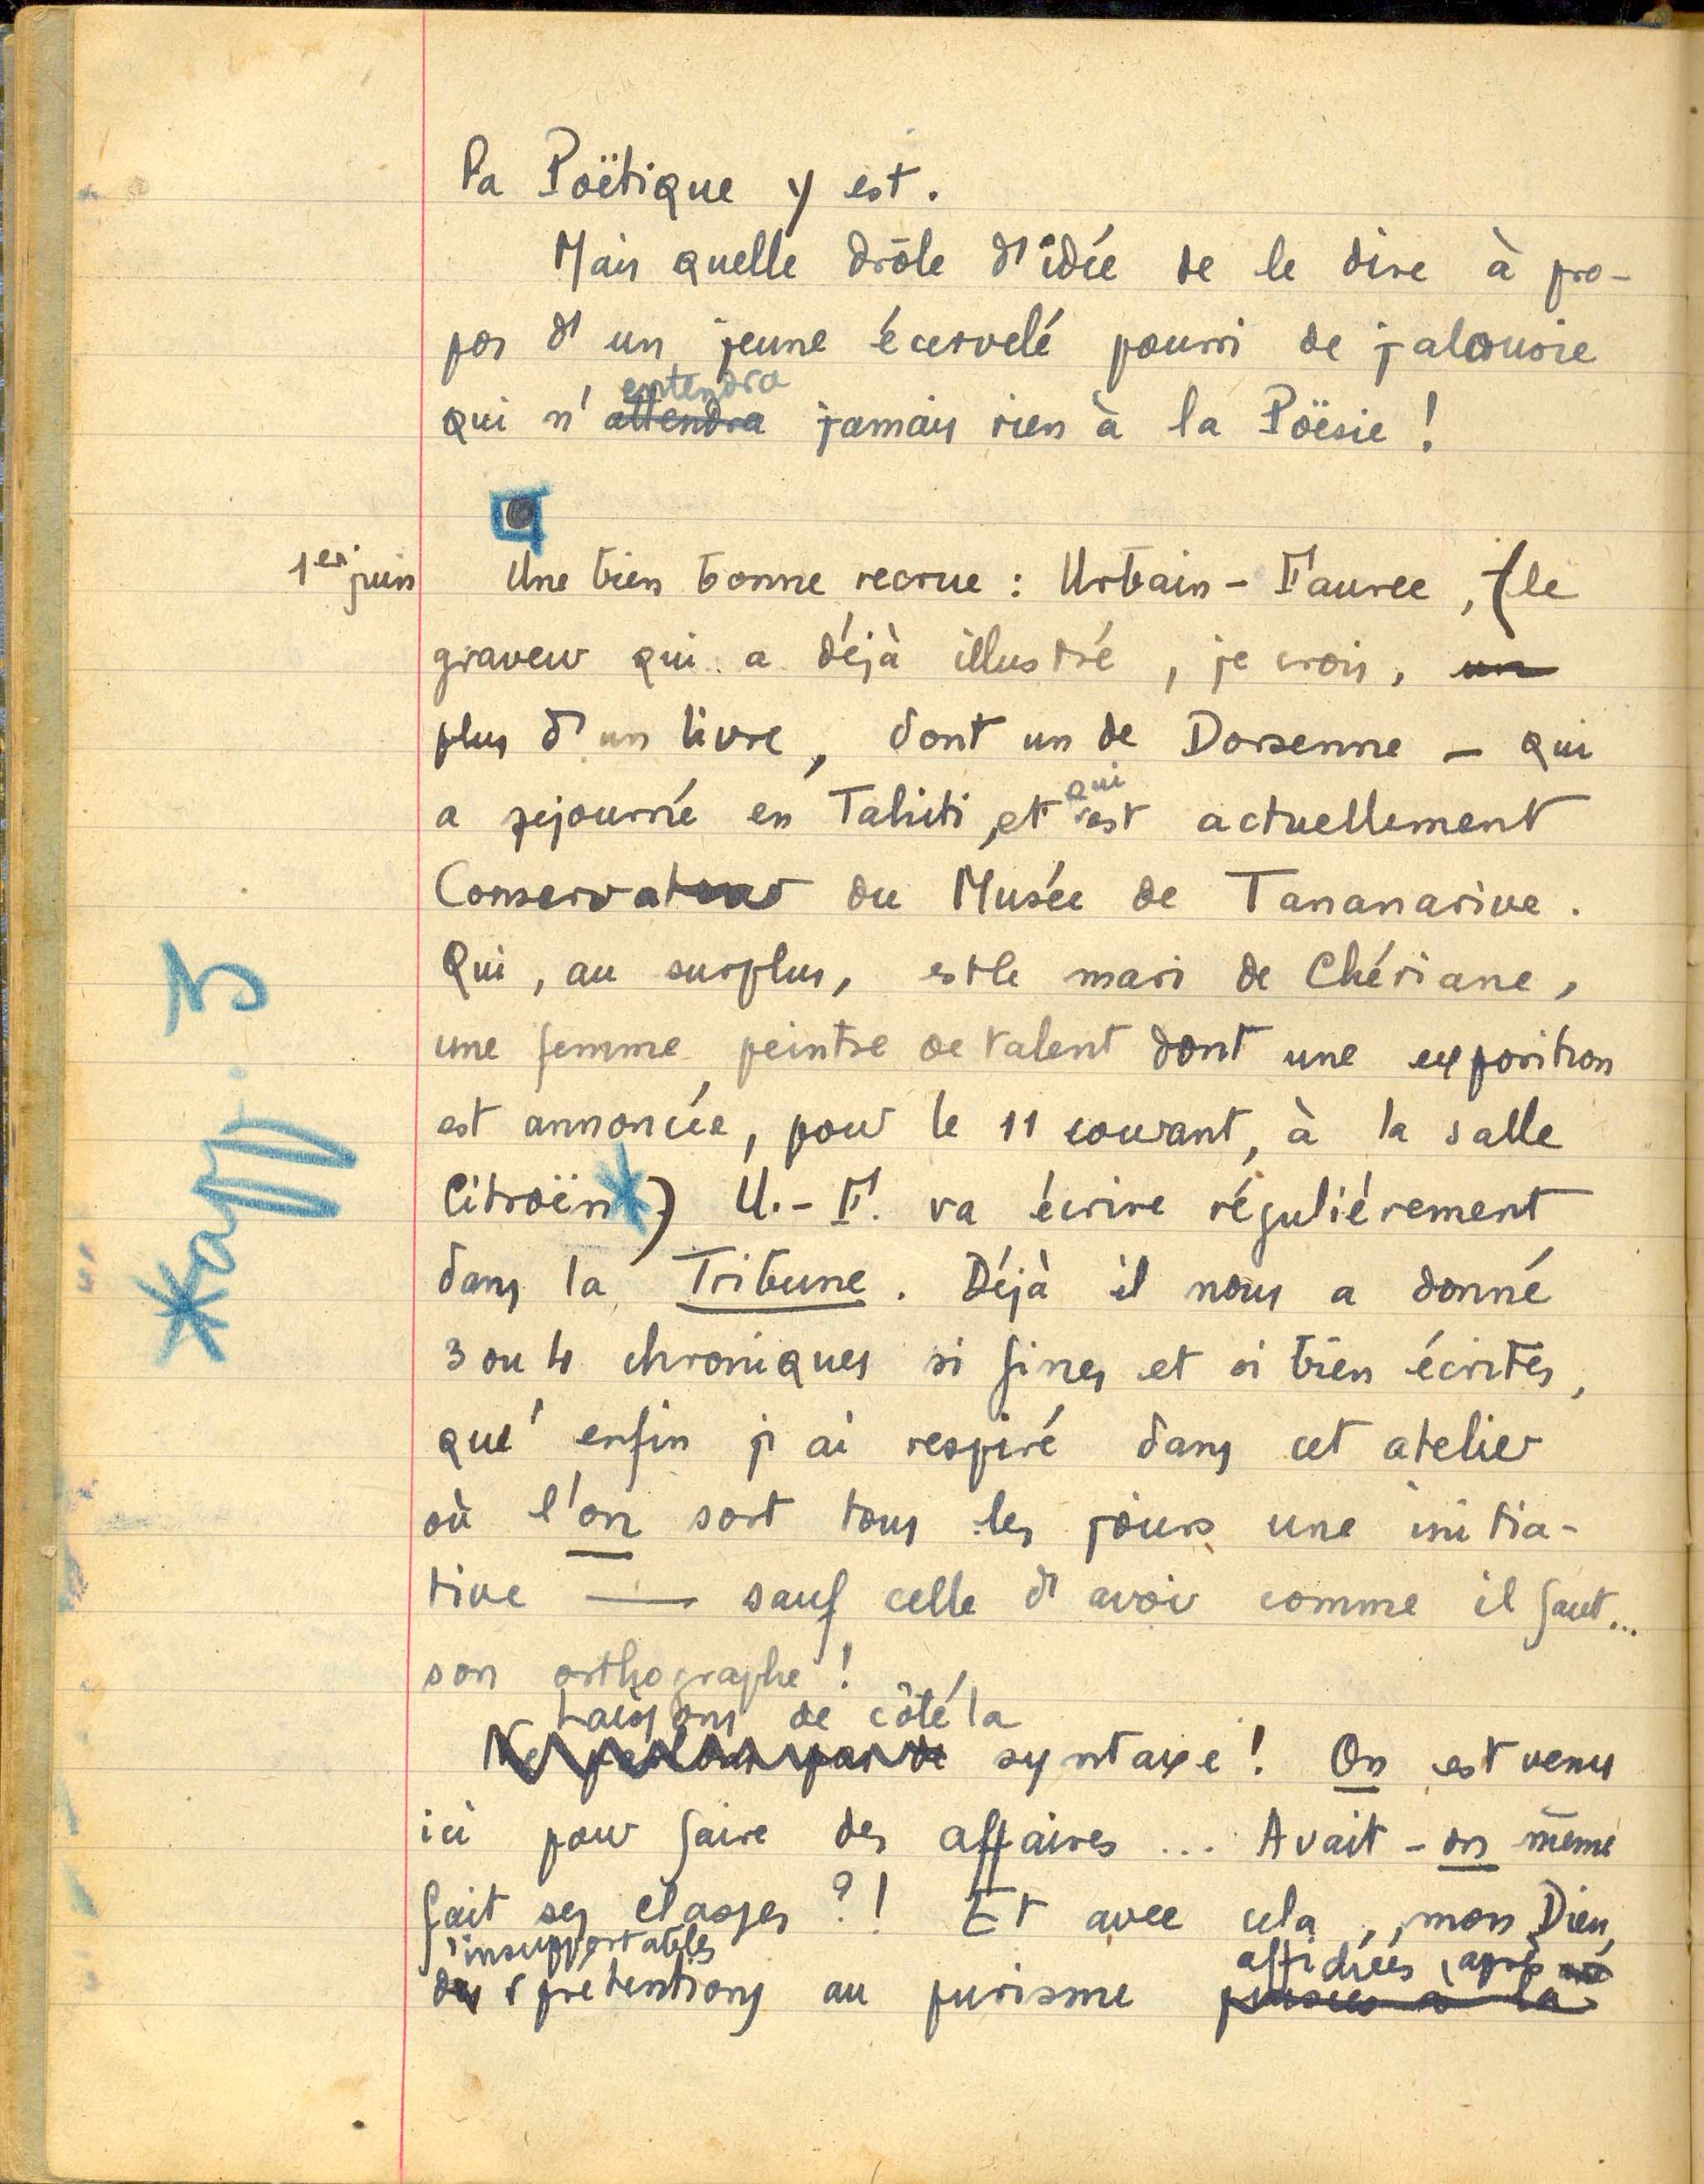 la Poëtique y est.
Mais quelle drôle d'idée de le dire à pro-
pos d'un jeune écervelé pourri de jalousie
entendra
qui n'attendra jamais rien à la Poësie !
1er juin
Une bien bonne recrue : Urbain-Faurec, (le
graveur qui a déjà illustré, je crois, un
plus d'un livre, dont un de Dorsenne — qui
qui
a séjourné en Tahiti, et est actuellement
Conservateur du Musée de Tananarive.
Qui, au surplus, est le mari de Chériane,
une femme peintre de talent dont une exposition
est annoncée, pour le 11 courant, à la salle
Citroën*) U.-F. va écrire régulièrement
dans la Tribune. Déjà il nous a donné
3 ou 4 chroniques si fines et si bien écrites,
qu'enfin j'ai respiré dans cet atelier
où l'on sort tous les jours une initia-
tive — sauf celle d'avoir comme il faut...
son orthographe !
Laissons de côté la
syntaxe ! On est venu
ici pour faire des affaires ... Avait-on même
fait ses classes ?! Et avec cela, mon Dieu,
insupportables
affichées, après
des prétentions au purisme